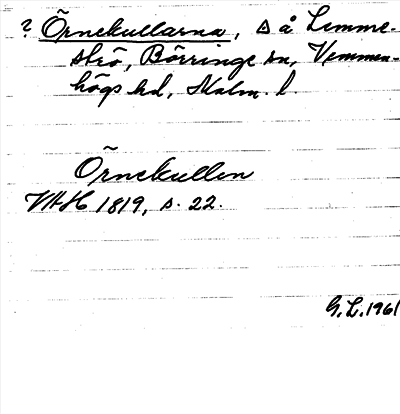 ? Örnekullarna, Δ å Lemme-
strö, Börringe sn, Vemmen-
högs hd, Malm. l.
Örnekullen
VHH 1819, s. 22.
G.L. 1961